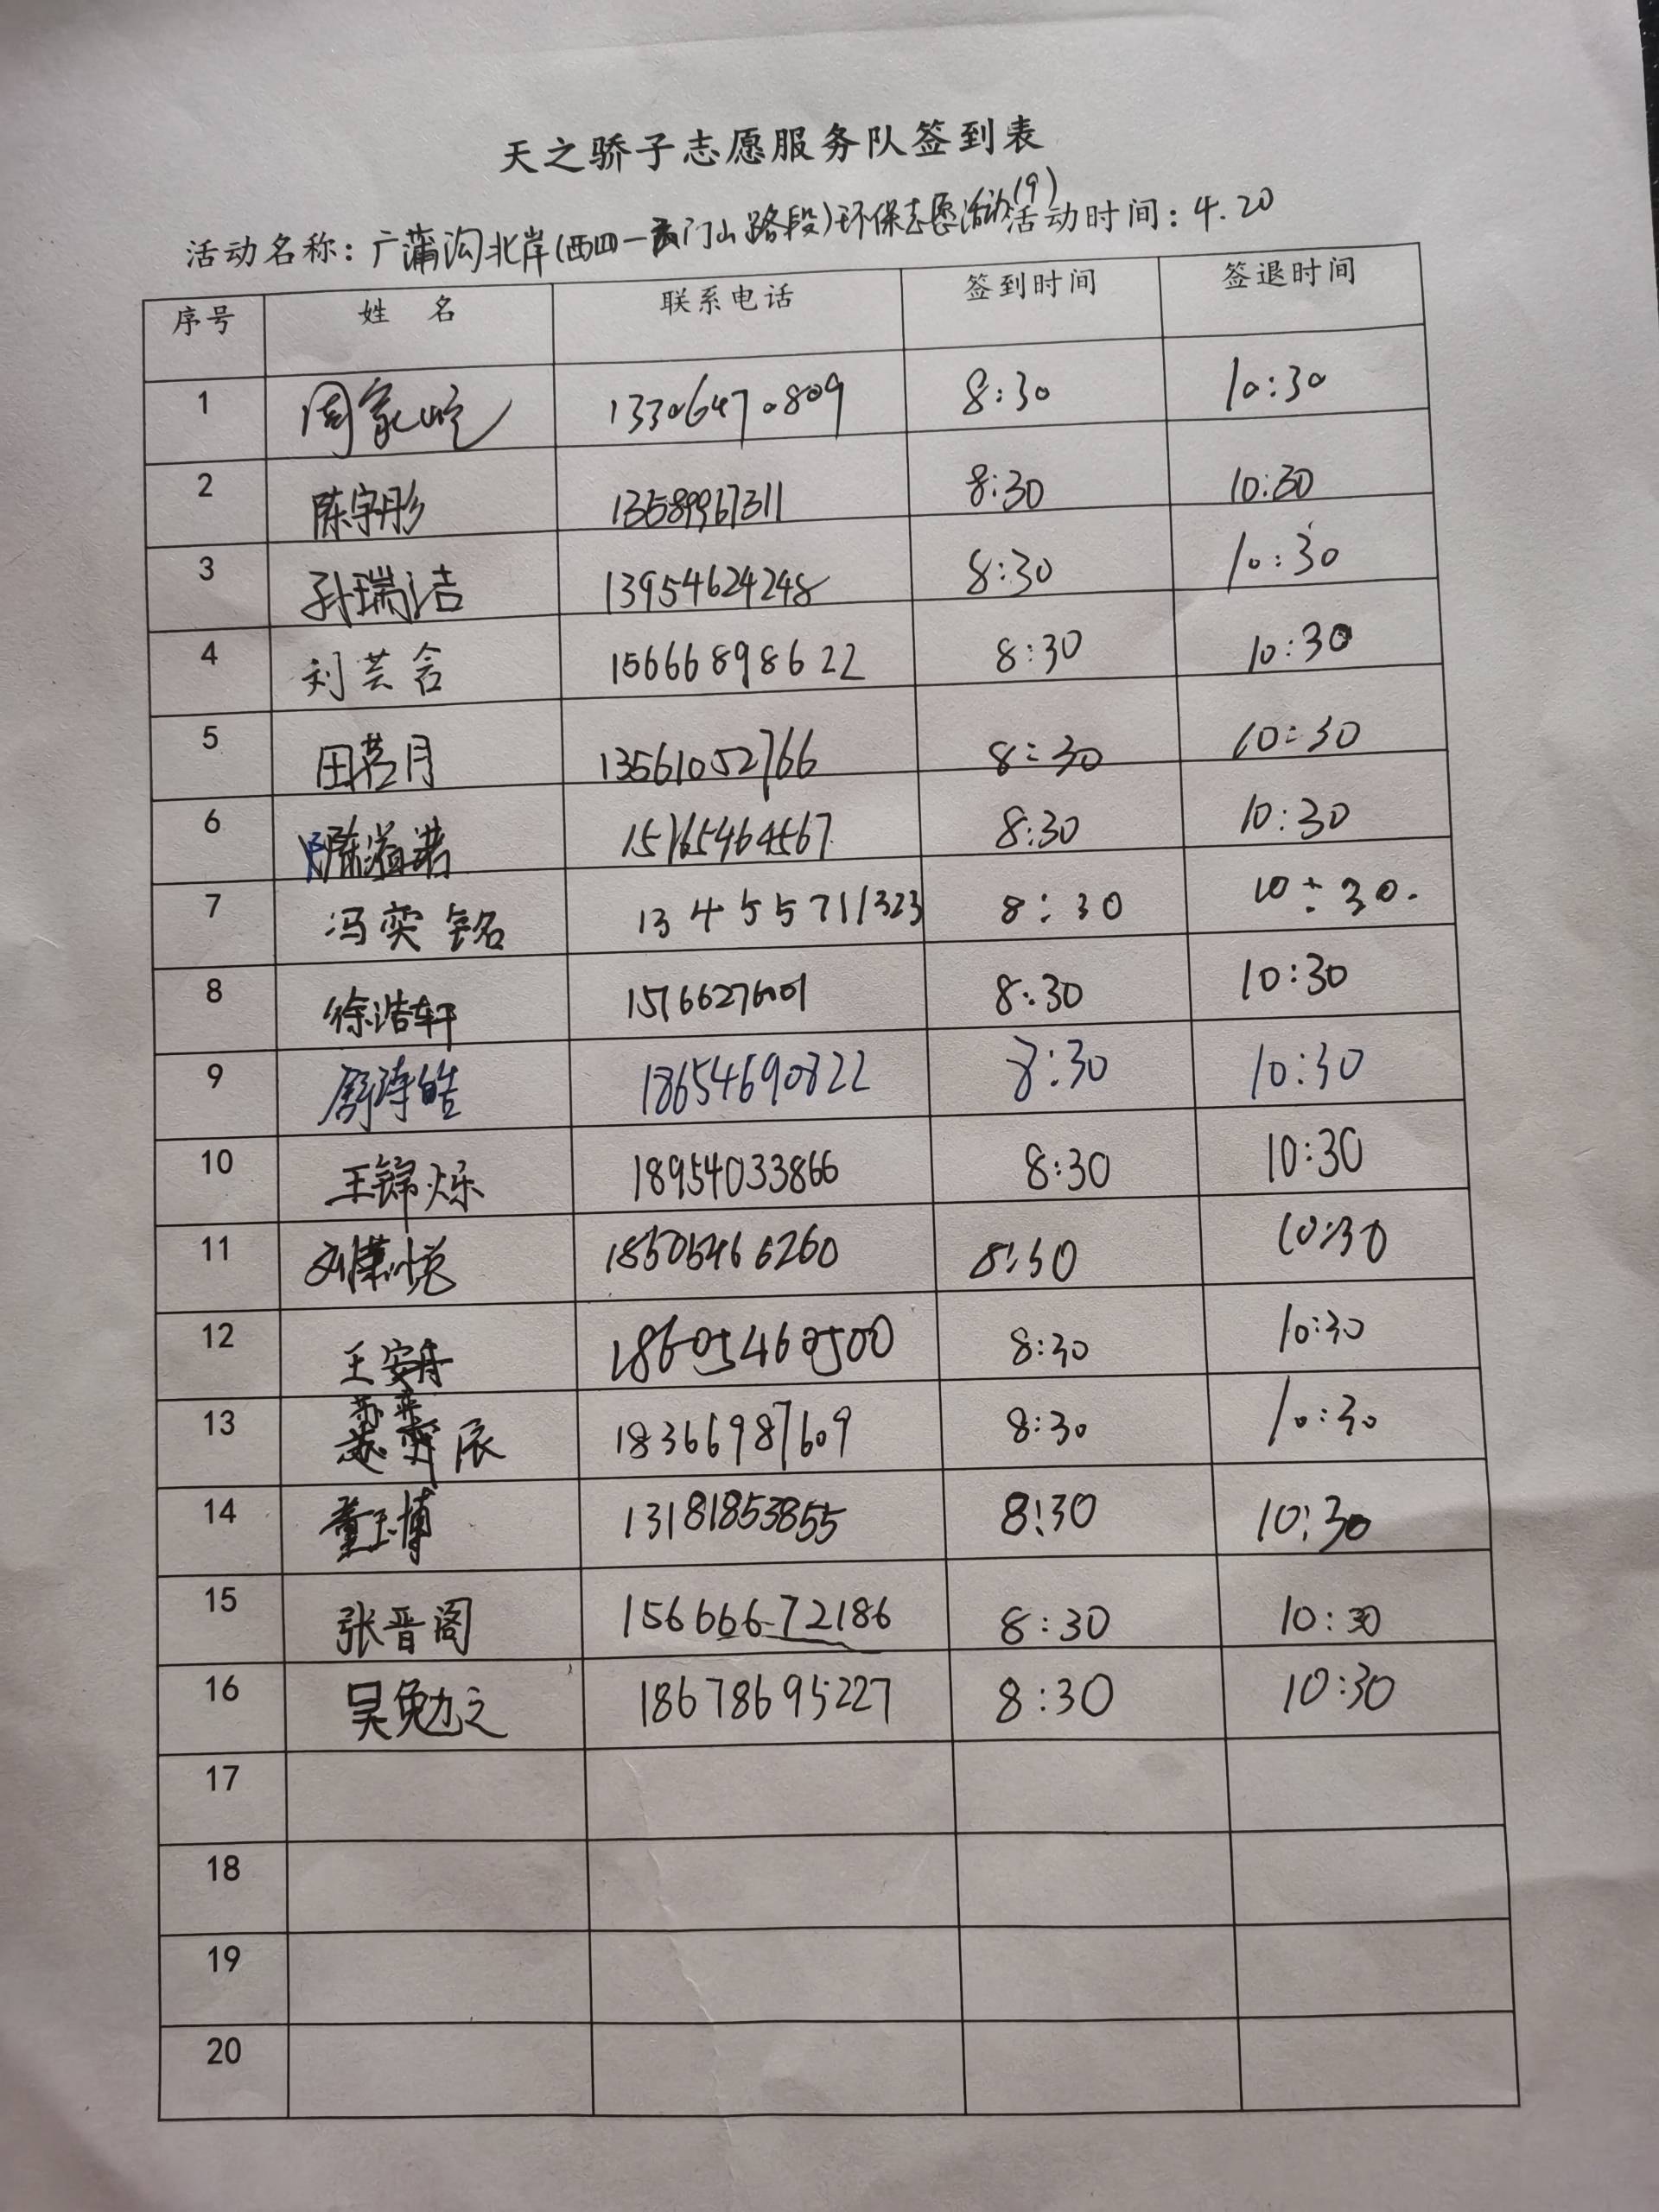 天之骄子志愿服务队签到表
活动名称：广蒲沟北岸(西四一云门山路段)环保志愿活动(9) 活动时间：4.20
序号 姓 名 联系电话 签到时间 签退时间
1 周家屹 13306470809 8:30 10:30
2 陈宇彤 13589967311 8:30 10:30
3 孙瑞洁 13954624248 8:30 10:30
4 刘芸含 15666898622 8:30 10:30
5 田茗月 13561052766 8:30 10:30
6 陈溢诺 15765464567 8:30 10:30
7 冯奕铭 13455711323 8:30 10:30.
8 徐浩轩 8:30 10:30
9 舒涛皓 18654690822 8:30 10:30
10 王锦烁 18954033866 8:30 10:30
11 刘潇悦 18505466260 8:30 10:30
12 王安丹 18605460500 8:30 10:30
13 苏奕辰 18366987609 8:30 10:30
14 董玉博 13181853855 8:30 10:30
15 张晋阁 15666672186 8:30 10:30
16 吴勉之 18678695227 8:30 10:30
17
18
19
20